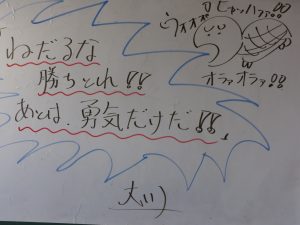 ウオオオ ヒャッハァァ!!
「ねだるな
勝ちとれ!!
オラァオラァ!!
あとは、勇気だけだ!!」
大川